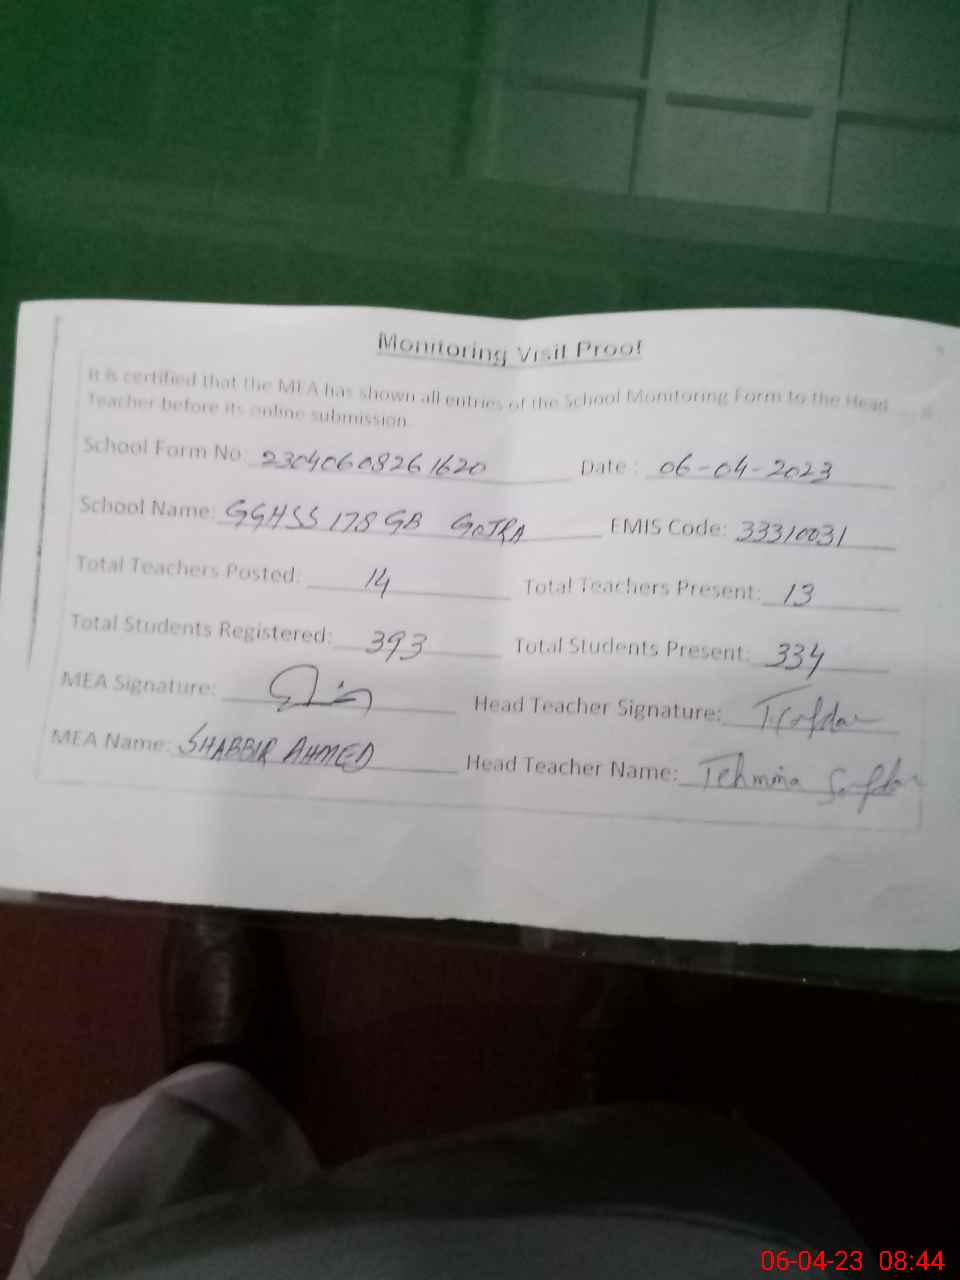 Monitoring Visit Proof
It is certified that the MEA has shown all entries of the School Monitoring Form to the Head
Teacher before its online submission.
School Form No: 23040608261620 Date: 06-04-2023
School Name: GGHSS 178 GB GOJRA EMIS Code: 33310031
Total Teachers Posted: 14 Total Teachers Present: 13
Total Students Registered: 393 Total Students Present: 334
MEA Signature: Head Teacher Signature: T.Safdar
MEA Name: SHABBIR AHMED Head Teacher Name: Tehmina Safdar
06-04-23 08:44